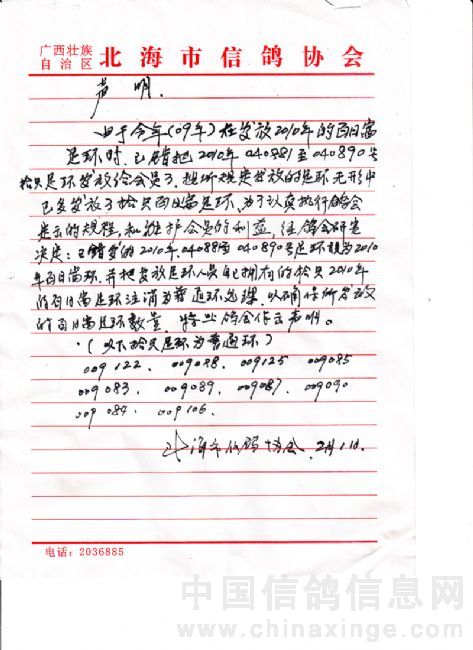 广西壮族
自治区 北海市信鸽协会
声明.
由于今年(09年)在发放2010年的百日富
足环时,已错把2010年040881至040890号
拾只足环发放给会员了.按所规定发放的足环无形中
已多发放了拾只百日富足环.为了认真执行鸽会
的规程,和维护会员的利益,经鸽会研究
决定:已错发的2010年,040881至040890号足环为2010
年百日富环.并把发放足环人员自己拥有的拾只2010年
的百日富足环注消为普通环处理.以确保所发放
的百日富足环数量.特此鸽会作出声明.
·(以下拾只足环为普通环)
009122. 009088. 009125 009085
009083. 009089. 009087. 009090
009084. 009106.
北海市信鸽协会.2月1日.
电话:2036885
中国信鸽信息网
www.chinaxinge.com